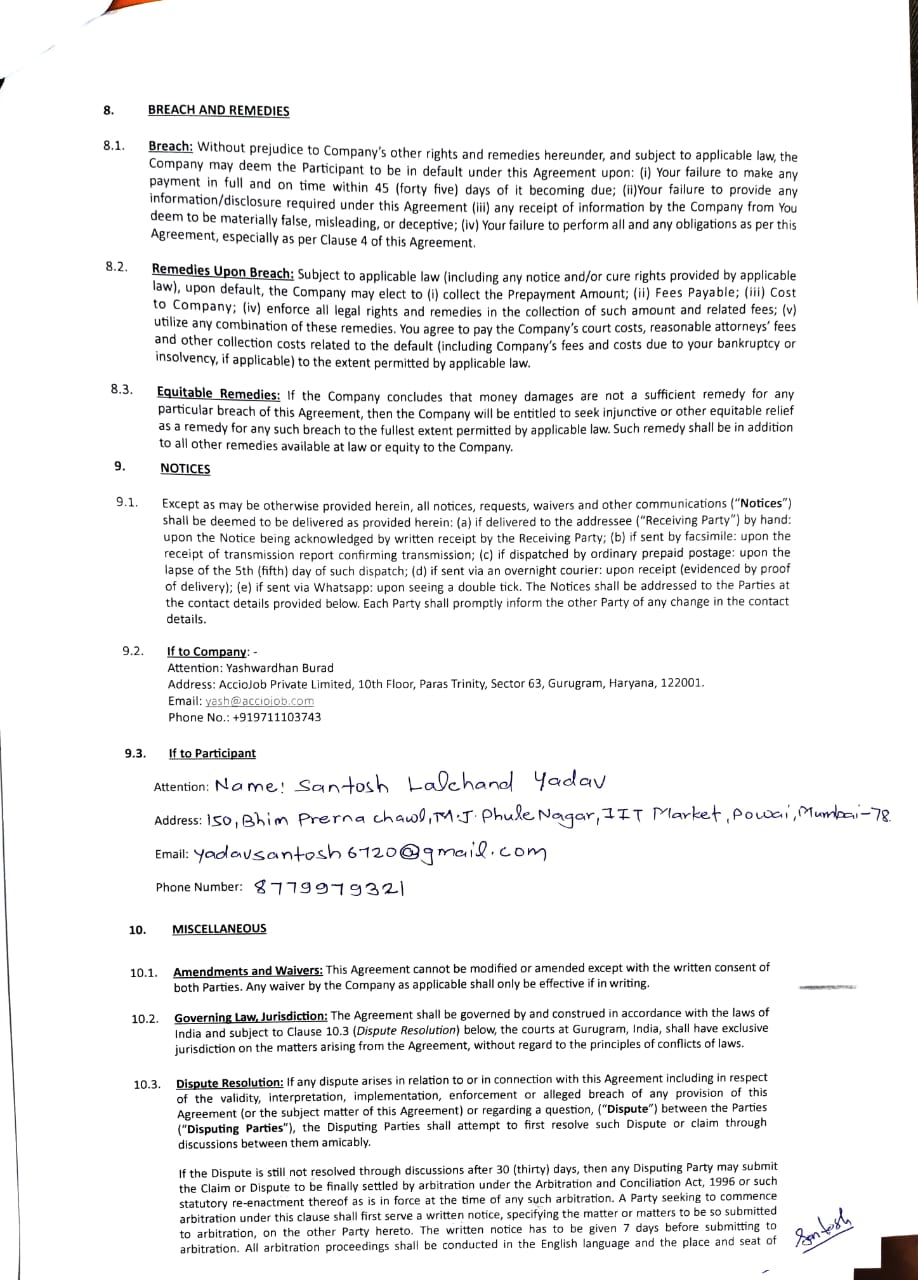 8. BREACH AND REMEDIES
8.1. Breach: Without prejudice to Company's other rights and remedies hereunder, and subject to applicable law, the
Company may deem the Participant to be in default under this Agreement upon: (i) Your failure to make any
payment in full and on time within 45 (forty five) days of it becoming due; (ii)Your failure to provide any
information/disclosure required under this Agreement (iii) any receipt of information by the Company from You
deem to be materially false, misleading, or deceptive; (iv) Your failure to perform all and any obligations as per this
Agreement, especially as per Clause 4 of this Agreement.
8.2. Remedies Upon Breach: Subject to applicable law (including any notice and/or cure rights provided by applicable
law), upon default, the Company may elect to (i) collect the Prepayment Amount; (ii) Fees Payable; (iii) Cost
to Company; (iv) enforce all legal rights and remedies in the collection of such amount and related fees; (v)
utilize any combination of these remedies. You agree to pay the Company's court costs, reasonable attorneys' fees
and other collection costs related to the default (including Company's fees and costs due to your bankruptcy or
insolvency, if applicable) to the extent permitted by applicable law.
8.3. Equitable Remedies: If the Company concludes that money damages are not a sufficient remedy for any
particular breach of this Agreement, then the Company will be entitled to seek injunctive or other equitable relief
as a remedy for any such breach to the fullest extent permitted by applicable law. Such remedy shall be in addition
to all other remedies available at law or equity to the Company.
9. NOTICES
9.1. Except as may be otherwise provided herein, all notices, requests, waivers and other communications ("Notices")
shall be deemed to be delivered as provided herein: (a) if delivered to the addressee ("Receiving Party") by hand:
upon the Notice being acknowledged by written receipt by the Receiving Party; (b) if sent by facsimile: upon the
receipt of transmission report confirming transmission; (c) if dispatched by ordinary prepaid postage: upon the
lapse of the 5th (fifth) day of such dispatch; (d) if sent via an overnight courier: upon receipt (evidenced by proof
of delivery); (e) if sent via Whatsapp: upon seeing a double tick. The Notices shall be addressed to the Parties at
the contact details provided below. Each Party shall promptly inform the other Party of any change in the contact
details.
9.2. If to Company: -
Attention: Yashwardhan Burad
Address: AccioJob Private Limited, 10th Floor, Paras Trinity, Sector 63, Gurugram, Haryana, 122001.
Email: yash@acciojob.com
Phone No.: +919711103743
9.3. If to Participant
Attention: Name: Santosh Lalchand Yadav
Address: 150, Bhim Prerna chawl, M.J. Phule Nagar, IIT Market, Powai, Mumbai-78.
Email: yadavsantosh6720@gmail.com
Phone Number: 8779979321
10. MISCELLANEOUS
10.1. Amendments and Waivers: This Agreement cannot be modified or amended except with the written consent of
both Parties. Any waiver by the Company as applicable shall only be effective if in writing.
10.2. Governing Law, Jurisdiction: The Agreement shall be governed by and construed in accordance with the laws of
India and subject to Clause 10.3 (Dispute Resolution) below, the courts at Gurugram, India, shall have exclusive
jurisdiction on the matters arising from the Agreement, without regard to the principles of conflicts of laws.
10.3. Dispute Resolution: If any dispute arises in relation to or in connection with this Agreement including in respect
of the validity, interpretation, implementation, enforcement or alleged breach of any provision of this
Agreement (or the subject matter of this Agreement) or regarding a question, ("Dispute") between the Parties
("Disputing Parties"), the Disputing Parties shall attempt to first resolve such Dispute or claim through
discussions between them amicably.
If the Dispute is still not resolved through discussions after 30 (thirty) days, then any Disputing Party may submit
the Claim or Dispute to be finally settled by arbitration under the Arbitration and Conciliation Act, 1996 or such
statutory re-enactment thereof as is in force at the time of any such arbitration. A Party seeking to commence
arbitration under this clause shall first serve a written notice, specifying the matter or matters to be so submitted
to arbitration, on the other Party hereto. The written notice has to be given 7 days before submitting to
arbitration. All arbitration proceedings shall be conducted in the English language and the place and seat of
Santosh